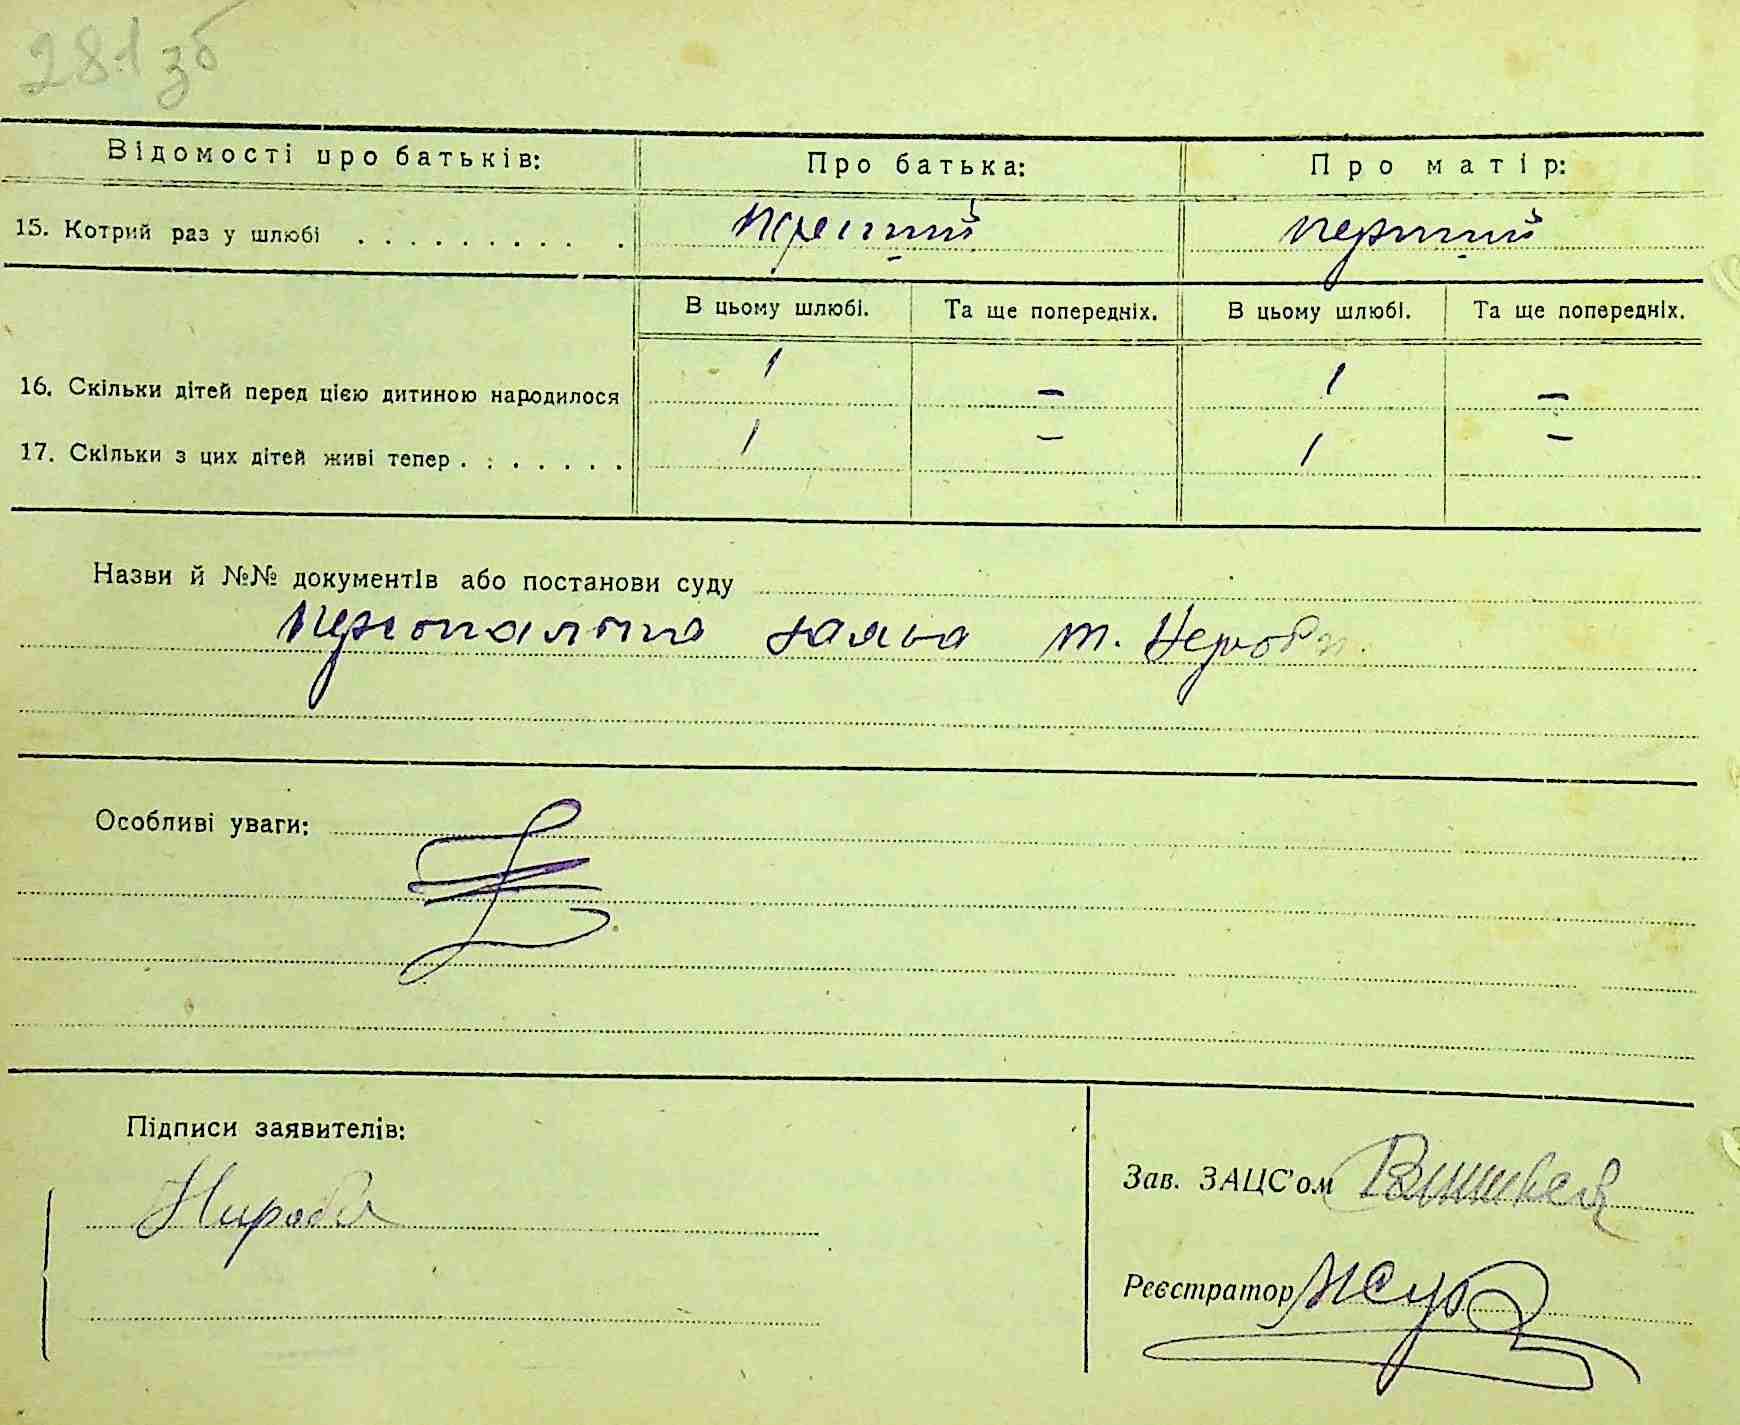 281 зб
Відомості про батьків: Про батька: Про матір:
15. Котрий раз у шлюбі . . . . . . . . . . перший перший
В цьому шлюбі. Та ще попередніх. В цьому шлюбі. Та ще попередніх.
16. Скільки дітей перед цією дитиною народилося 1 — 1 —
17. Скільки з цих дітей живі тепер . . . . . . . 1 — 1 —
Назви й №№ документів або постанови суду
персональна заява т.
Особливі уваги:
Підписи заявителів:
Зав. ЗАЦС'ом
Реєстратор